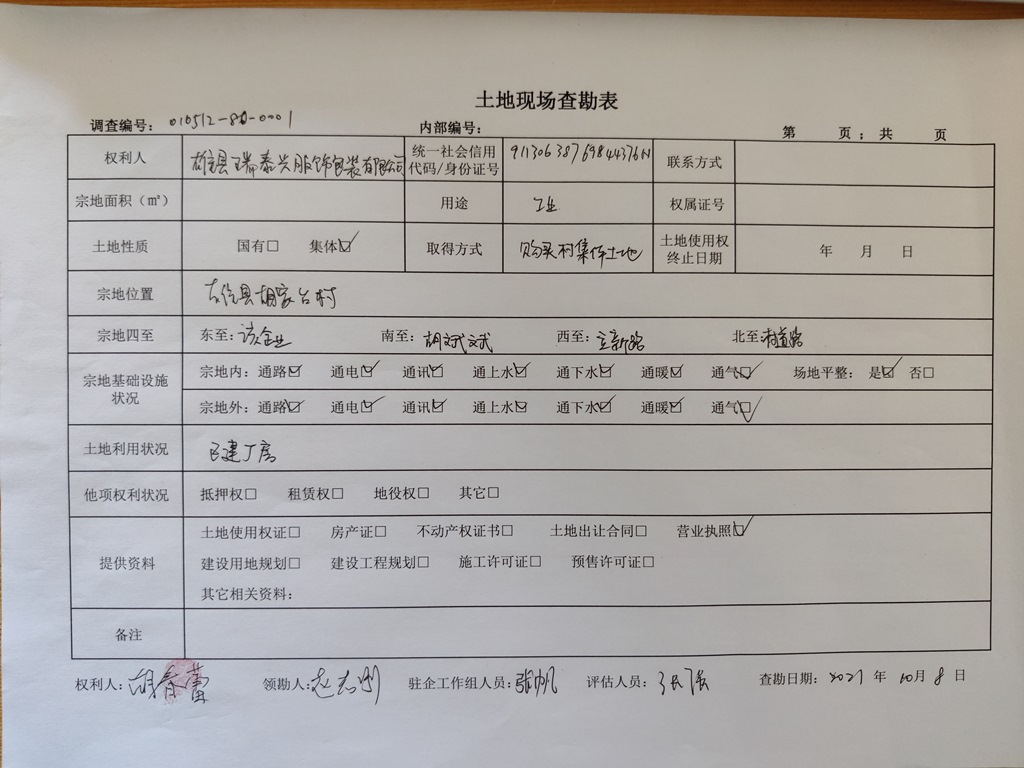 土地现场查勘表
调查编号： 010512-80-0001 内部编号： 第 页；共 页
权利人 雄县瑞泰兴服饰包装有限公司 统一社会信用代码/身份证号 91130638769844376N 联系方式
宗地面积（㎡） 用途 工业 权属证号
土地性质 国有□ 集体☑ 取得方式 购买村集体土地 土地使用权终止日期 年 月 日
宗地位置 雄县胡家台村
宗地四至 东至：该企业 南至：胡斌斌 西至：立新路 北至：村道路
宗地基础设施状况 宗地内：通路☑ 通电☑ 通讯☑ 通上水☑ 通下水☑ 通暖☑ 通气☑ 场地平整： 是☑ 否□
宗地外：通路☑ 通电☑ 通讯☑ 通上水☑ 通下水☑ 通暖☑ 通气☑
土地利用状况 已建厂房
他项权利状况 抵押权□ 租赁权□ 地役权□ 其它□
提供资料 土地使用权证□ 房产证□ 不动产权证书□ 土地出让合同□ 营业执照☑
建设用地规划□ 建设工程规划□ 施工许可证□ 预售许可证□
其它相关资料：
备注
权利人：胡春蕾 领勘人：赵志刚 驻企工作组人员：张帆 评估人员： 查勘日期： 2021 年 10月 8 日